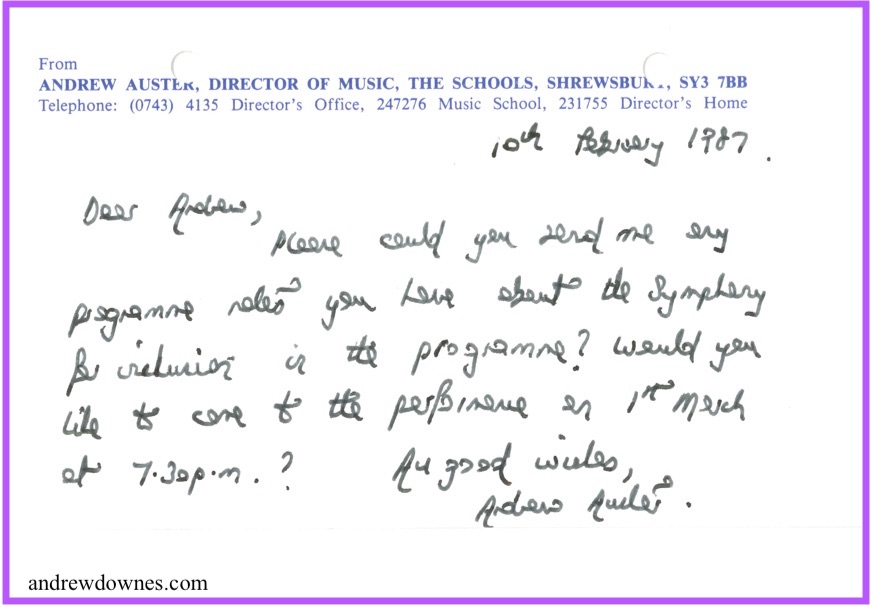 From
ANDREW AUSTER, DIRECTOR OF MUSIC, THE SCHOOLS, SHREWSBURY, SY3 7BB
Telephone: (0743) 4135 Director's Office, 247276 Music School, 231755 Director's Home
10th February 1987.
Dear Andrew,
Please could you send me any
programme notes you have about the Symphony
for inclusion in the programme? Would you
like to come to the performance on 1st March
at 7.30p.m.? All good wishes,
Andrew Auster.
andrewdownes.com